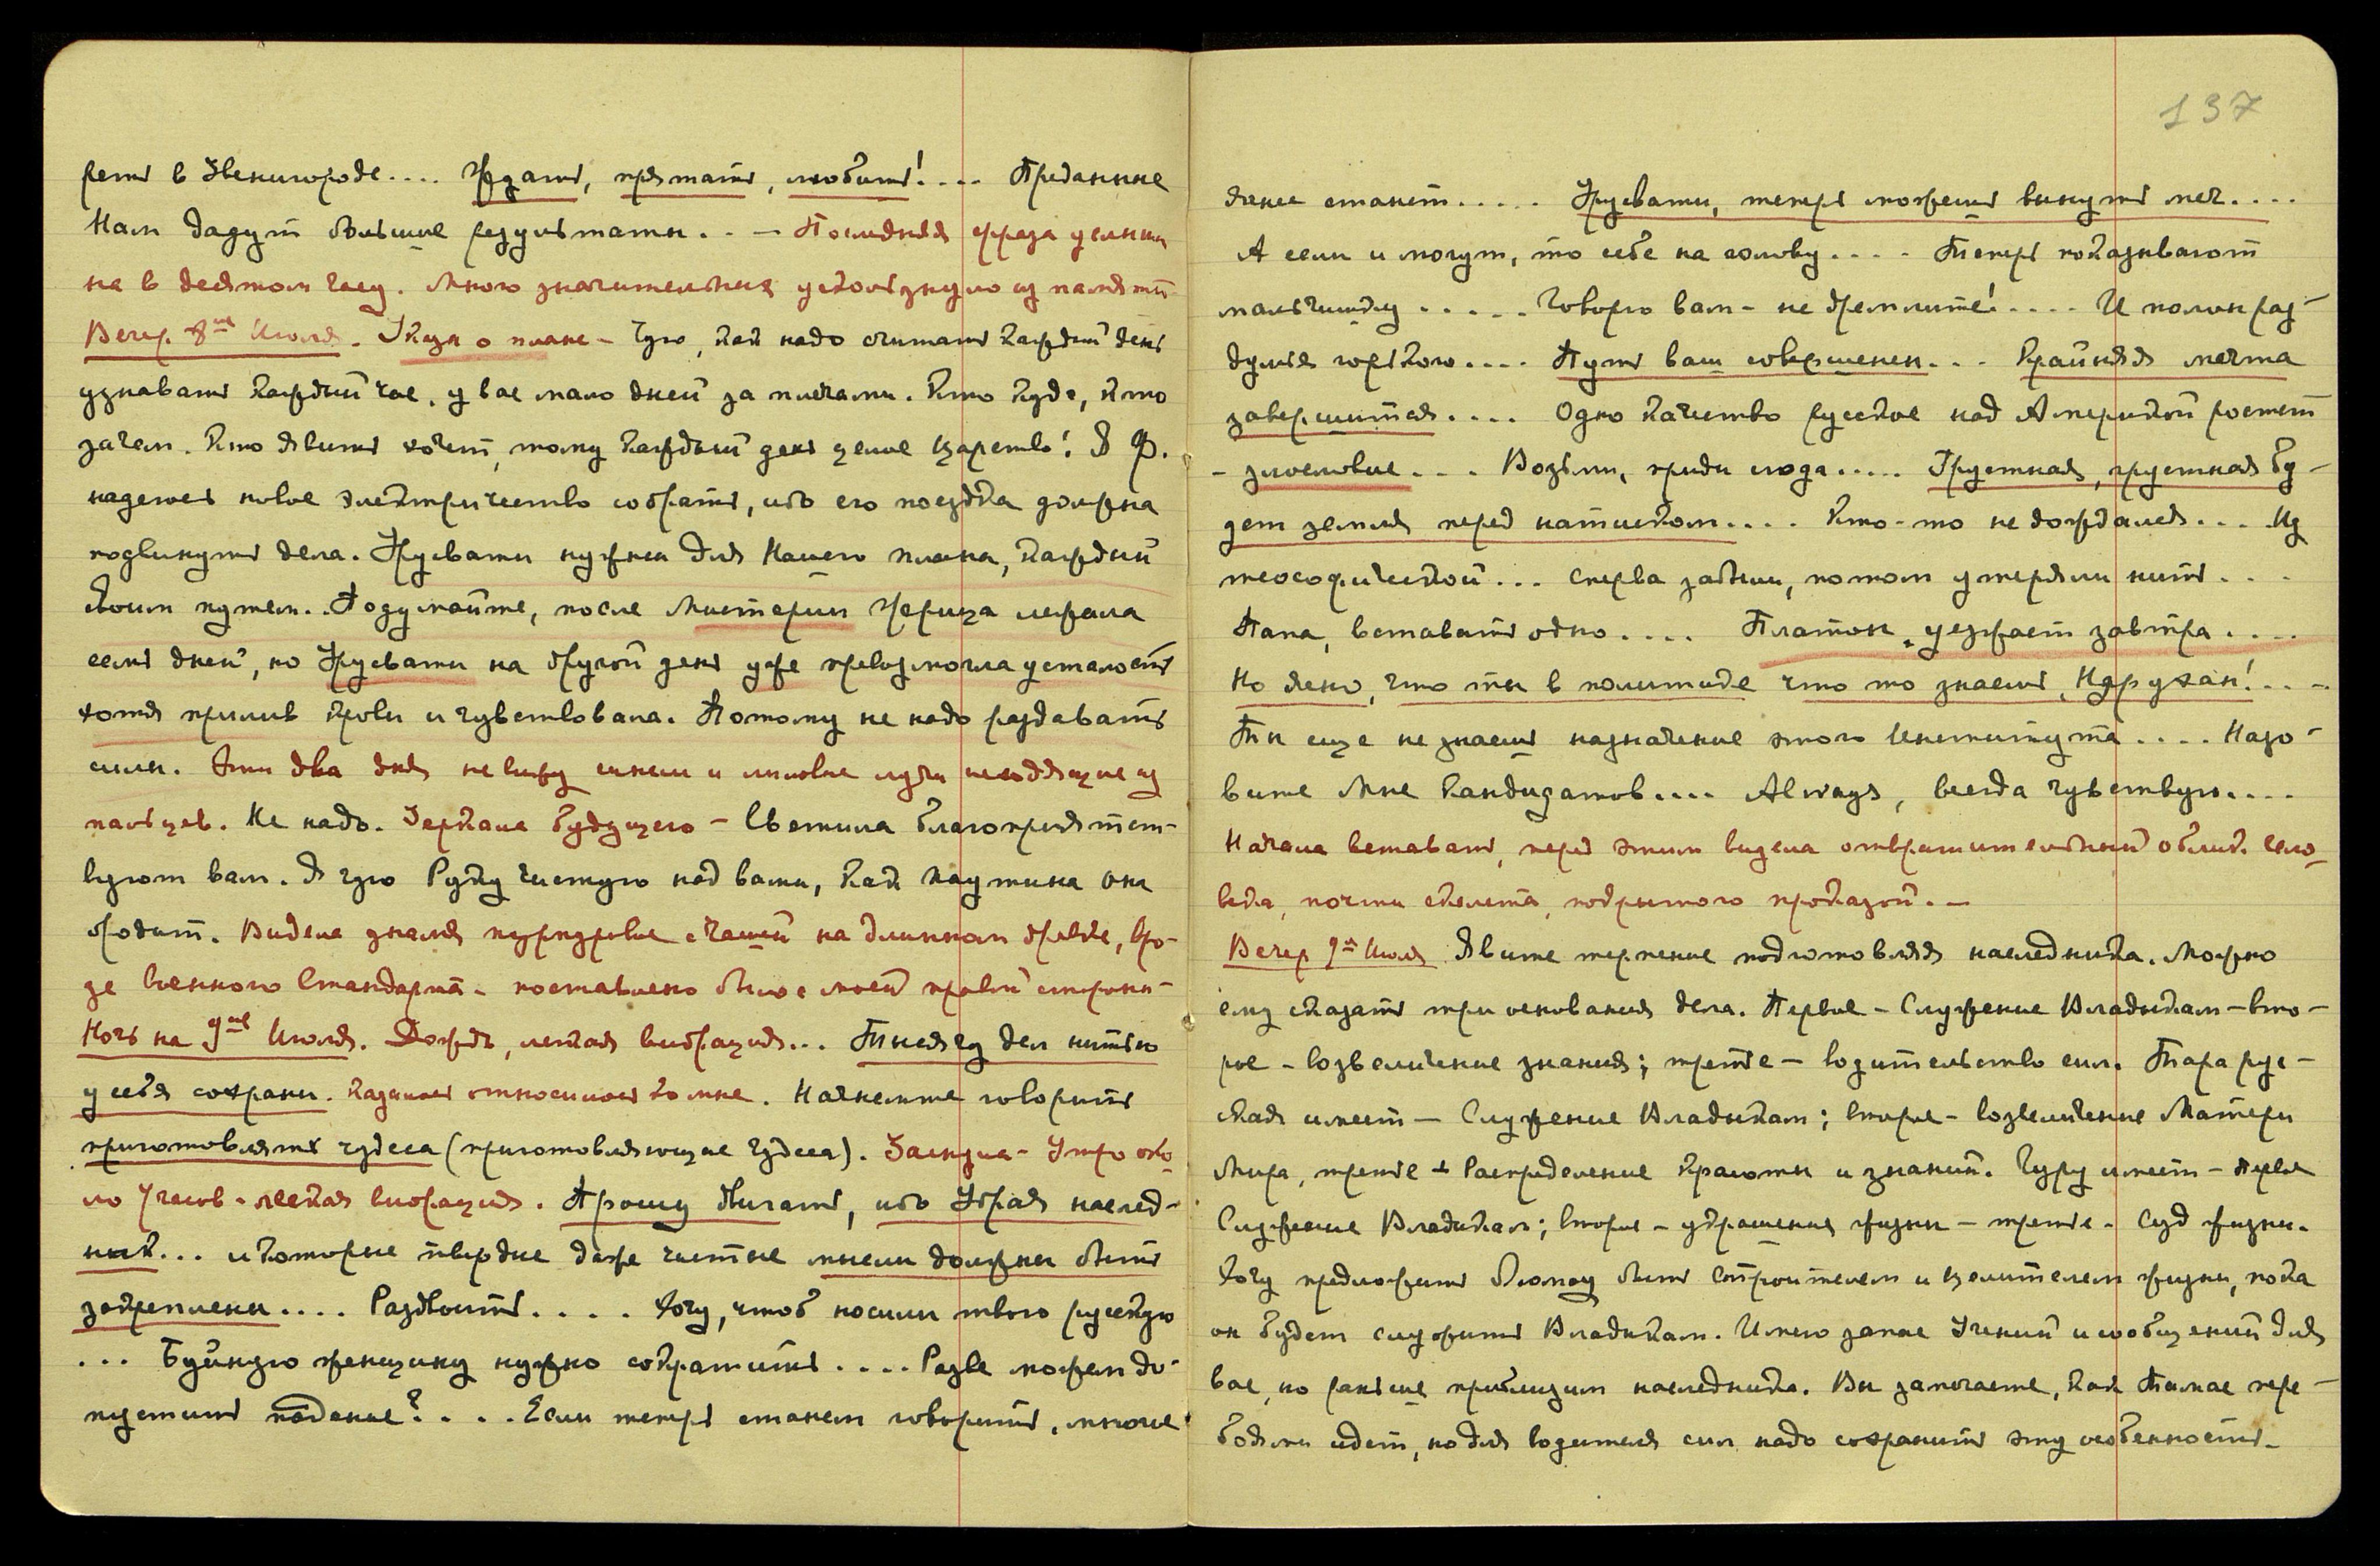 рень в Звенигороде.... Ждать, прятать, любить!.... Преданные
Нам дадут большие результаты. . — Последняя фраза услыша
на в десятом часу. Много значительных ускользнуло из памяти
Вечер 8ое Июля. Указ о плане — Чую, как надо считать каждый день
узнавать каждый час, у вас мало дней за плечами. Кто куда, кто
зачем. Кто явить хочет, тому каждый день целое царство! Я Ф.
надеюсь новое электричество собрать, ибо его поездка должна
подвинуть дела. Урусвати нужна для Нашего плана, каждый
своим путем. Подумайте, после Мистерии жрица лежала
семь дней, но Урусвати на другой день уже превозмогла усталость
хотя прилив крови и чувствовала. Потому не надо раздавать
силы. Эти два дня не вижу синеи и лиловые лучи исходящие из
пальцев. Не надо. Зеркале будущего — Светила благоприятст-
вуют вам. Я чую Руку чистую над вами, как паутина она
бродит. Видела знамя пурпуровое с чашей на длинном древке, вро-
де военного Стандарта — поставлено было с моей правой стороны —
Ночь на 9ое Июля. Дождь, легкая вибрация... Тысячу дел нитью
у себя сохрани. Казалось относилось ко мне. Начнемте говорить
приготовлять чудеса (приготовляющие чудеса). Заснула — Утро око
ло 4 часов — легкая вибрация. Прошу двигать, ибо Удрая наслед-
ник... и которые твердые даже чистые мысли должны быть
закреплены.... Раздвоить. . . . Хочу, чтоб носили твою русскую
... Буйную женщину нужно сократить.... Разве можем до-
пустить падение?. . . Если теперь станем говорить, многое
137
яснее станет..... Урусвати, теперь можешь вынуть меч....
А если и могут, то себе на голову.... Теперь показывают
мальчишку ..... Говорю вам — не дремлите!.... И полон раз-
думья горького.... Путь ваш совершенен... Крайняя мечта
завершится.... Одно качество русское над Америкой растет
— злословие... Возьми, приди сюда..... Грустная, грустная бу-
дет земля перед натиском.... Кто-то не дождался... Из
теософической... Сперва забыли, потом утеряли нить...
Папа, вставать одно.... Платон, уезжает завтра....
Но ясно, что ты в политике что то знаешь, Нару хан!...
Ты еще не знаешь назначение этого Института.... Назо-
вите Мне кандидатов.... Always, всегда чувствую....
Начала вставать, перед этим видела отвратительный облик чело
века, почти скелета, покрытого проказой. —
Вечер 9ое Июля Явите терпение подготовляя наследника. Можно
ему сказать три основания дела. Первое — Служение Владыкам — вто-
рое — возвеличение знания; третье — водительство сил. Тара рус-
ская имеет — Служение Владыкам; второе — возвеличение Матери
Мира, третье — Распределение Красоты и знаний. Гуру имеет — первое
Служение Владыкам; второе — украшение жизни — третье — Суд жизни.
Хочу предложить Люмоу быть строителем и целителем жизни, пока
он будет служить Владыкам. Имею запас Учений и сообщений для
вас, но раньше приблизим наследника. Вы замечаете, как Томас пере-
боями идет, но для водителя сил надо сохранить эту особенность.